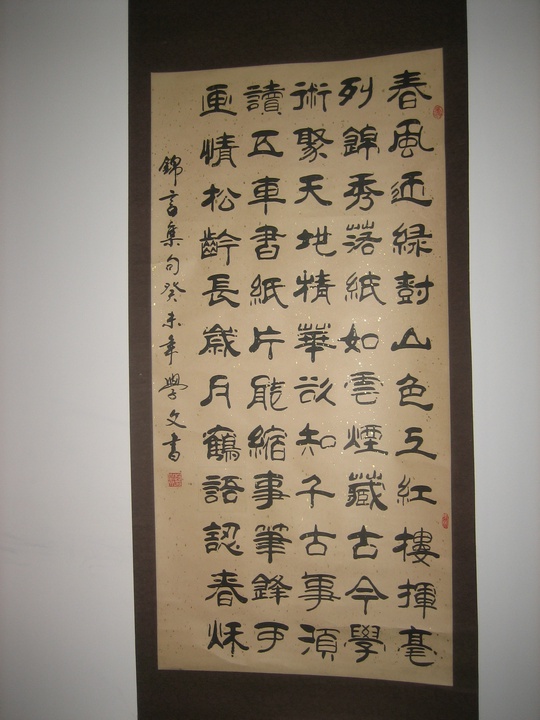 春風迎綠對山色工紅樓揮毫
列錦秀落紙如雲煙藏古今學
術聚天地精華欲知千古事須
讀五車書紙片能縮事筆鋒可
画情松齡長歲月鶴語認春秋
錦言集句癸未年學文書